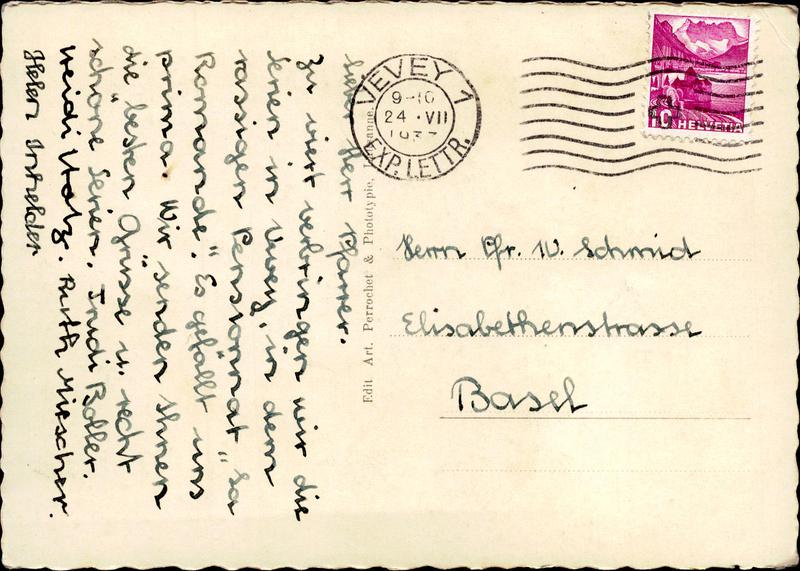 Lieber Herr Pfarrer.
Zu viert verbringen wir die
Ferien in Vevey, in dem
rassigen Pensionnat "La
Romande". Es gefällt uns
prima. Wir senden Ihnen
die besten Grüsse u. recht
schöne Ferien. Trudi Boller.
Heidi Stolz. Ruth Mitscher.
Helen
VEVEY 1
9-10
24.VII
1937
EXP. LETTR.
10 HELVETIA
Edit Art. Perrochet & Phototypie,
Herrn Pfr. W. Schmid
Elisabethenstrasse
Basel